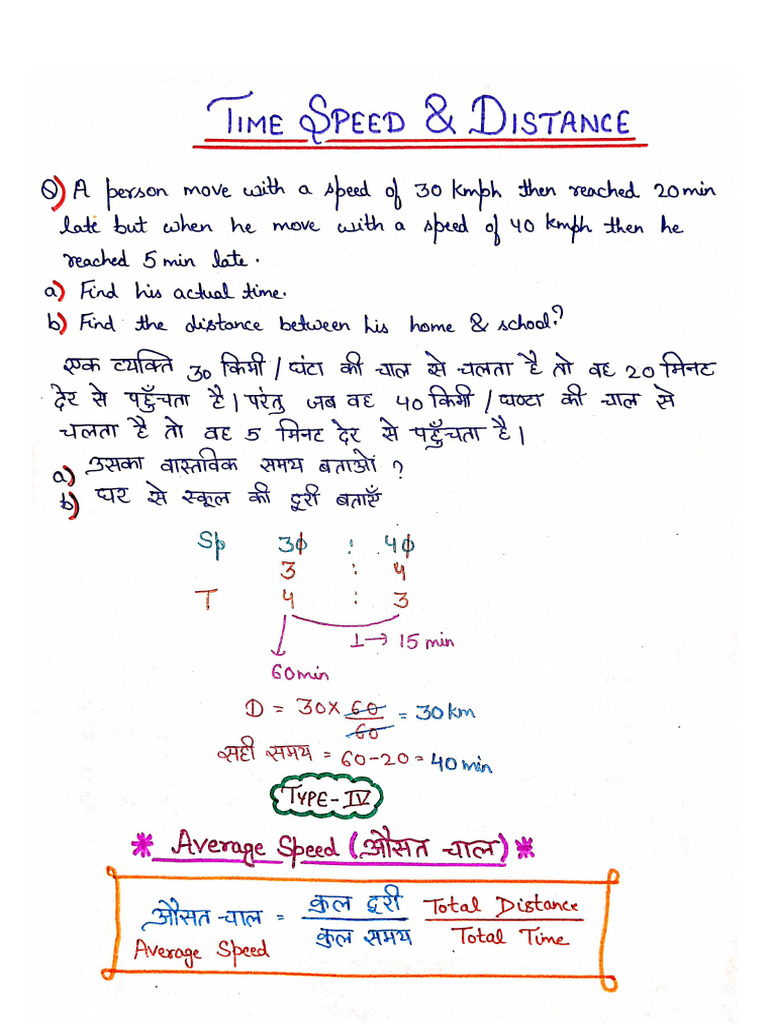 TIME SPEED & DISTANCE
Q) A person move with a speed of 30 kmph then reached 20 min
late but when he move with a speed of 40 kmph then he
reached 5 min late.
a) Find his actual time.
b) Find the distance between his home & school?
एक व्यक्ति 30 किमी / घंटा की चाल से चलता है तो वह 20 मिनट
देर से पहुँचता है। परंतु जब वह 40 किमी / घण्टा की चाल से
चलता है तो वह 5 मिनट देर से पहुँचता है।
a) उसका वास्तविक समय बताओं ?
b) घर से स्कूल की दूरी बताएँ
Sp 30 : 40
3 : 4
T 4 : 3
1 → 15 min
60 min
D = 30 × 60/60 = 30 km
सही समय = 60 - 20 = 40 min
TYPE - IV
* Average Speed (औसत चाल) *
औसत चाल = कुल दूरी / कुल समय Total Distance / Total Time
Average Speed